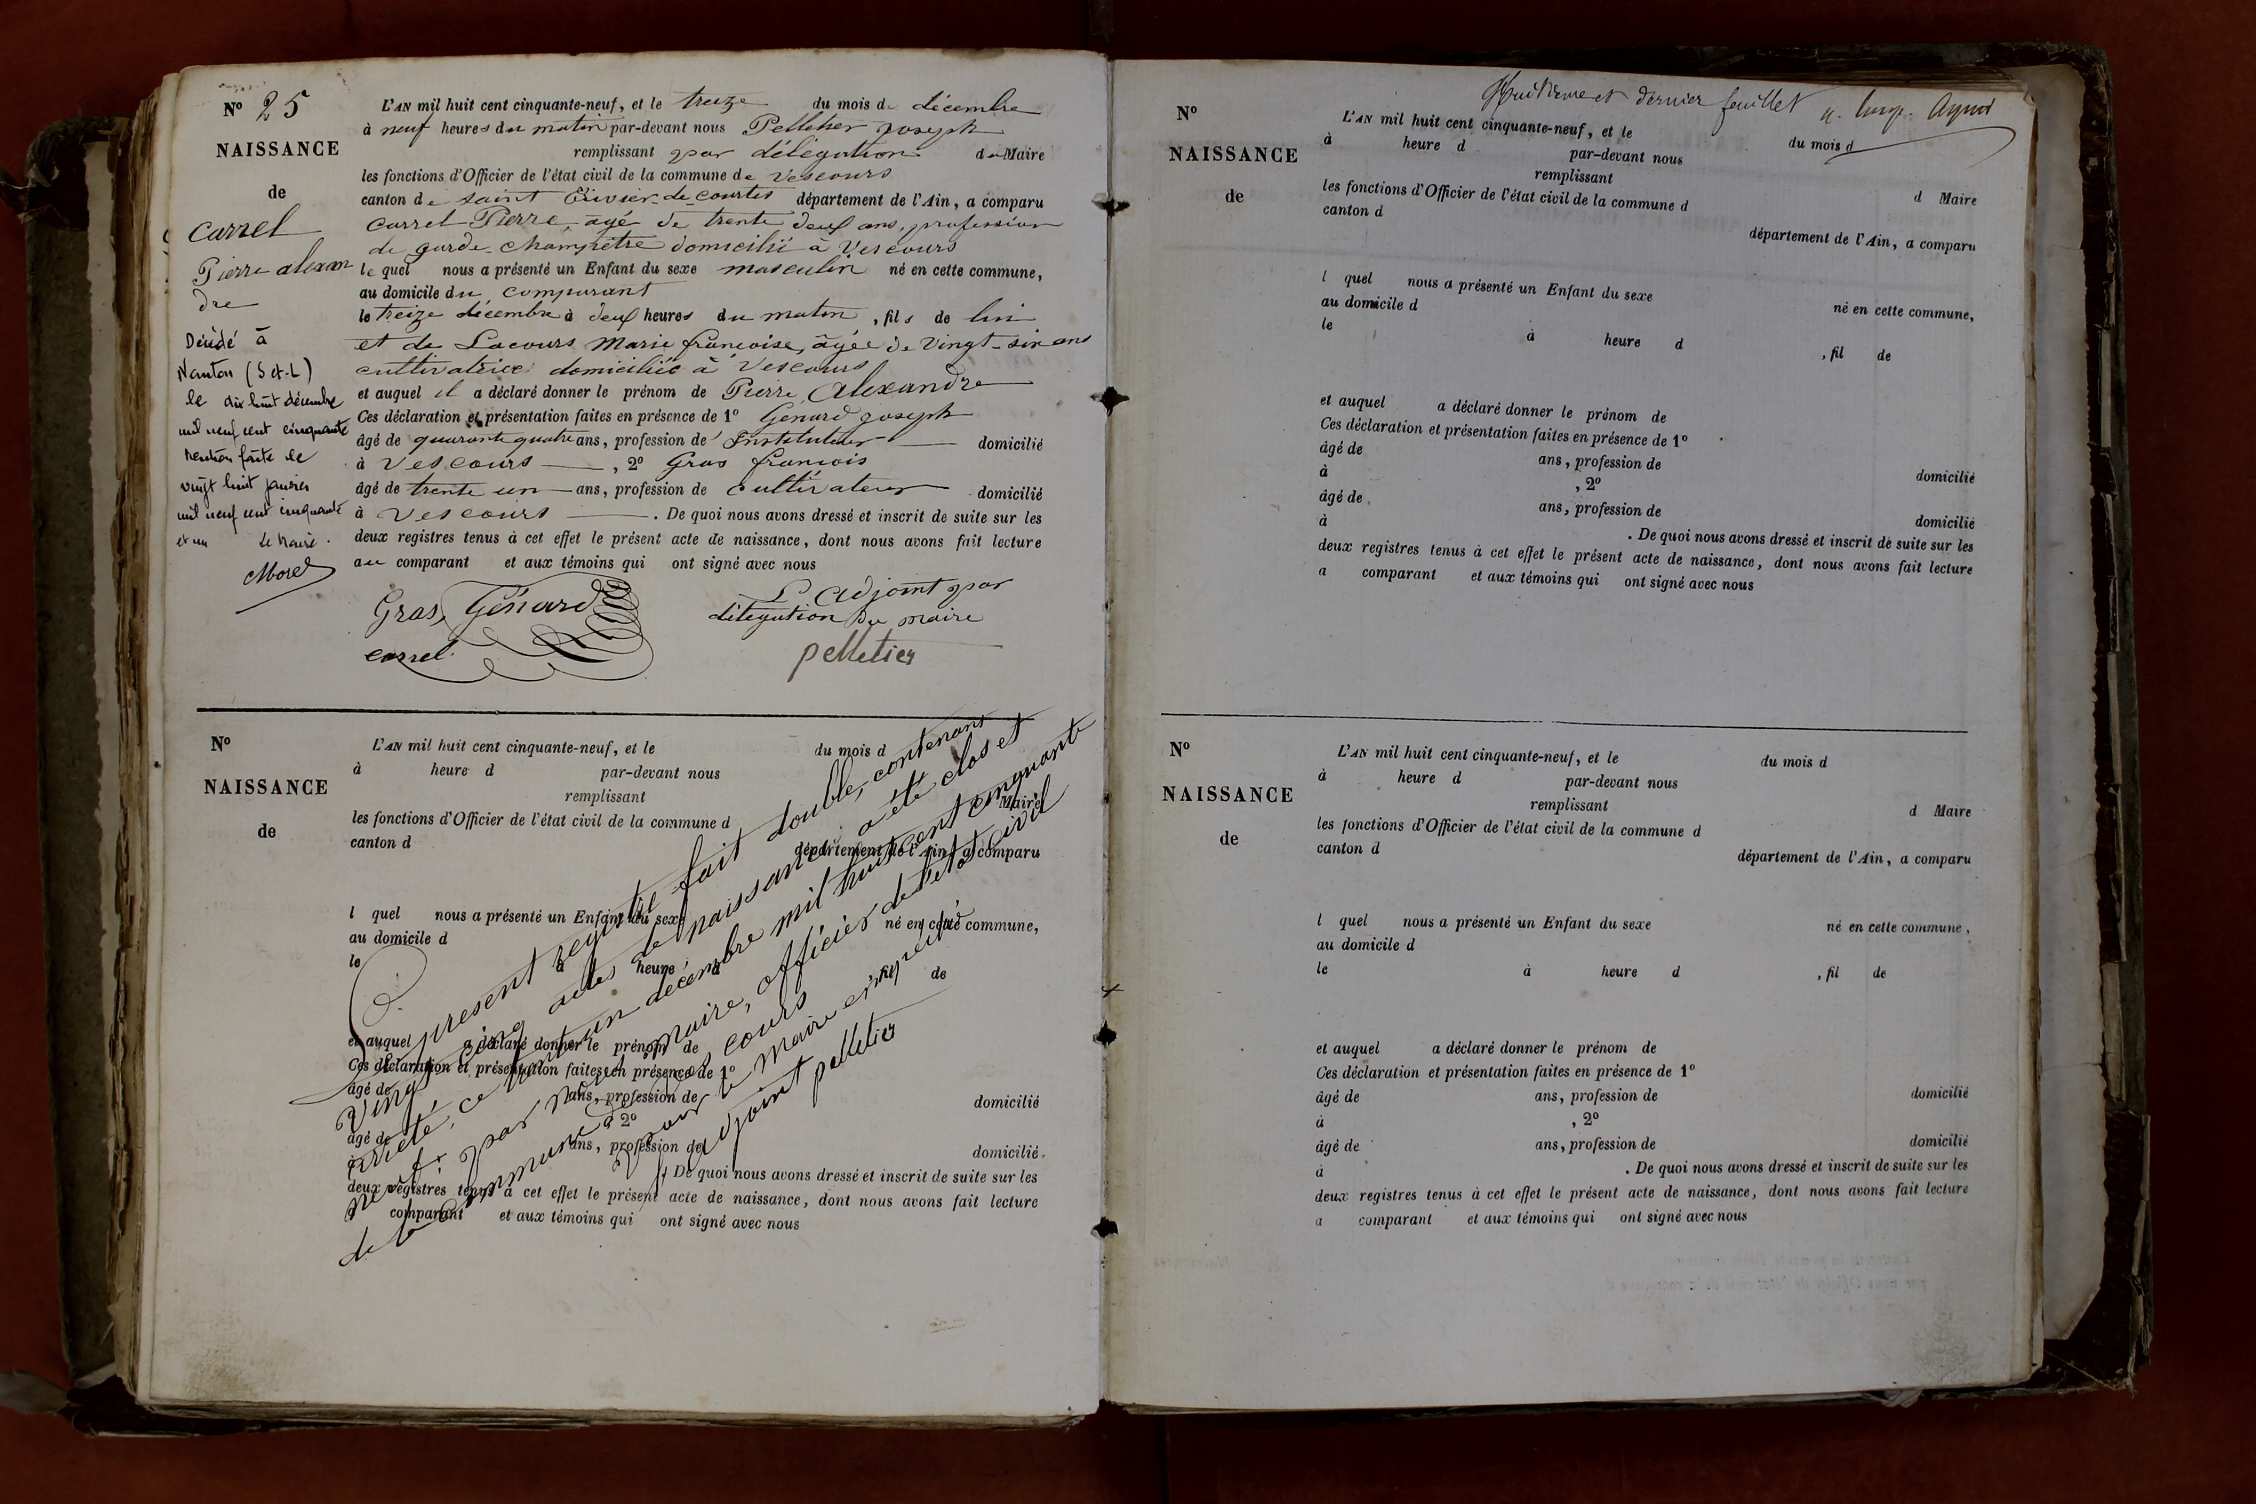 N° 25
NAISSANCE
de
Carrel
Pierre alexan
dre
Décédé à
Nanton (S et L)
le dix huit décembre
mil neuf cent cinquante
Mention faite le
vingt huit janvier
mil neuf cent cinquante
et un le Maire.
Morel
L'AN mil huit cent cinquante-neuf, et le treize du mois de décembre
à neuf heures du matin par-devant nous Pelletier joseph
remplissant par délégation du Maire
les fonctions d'Officier de l'état civil de la commune de Vescours
canton de saint Trivier de Courtes département de l'Ain, a comparu
Carrel Pierre, âgé de trente deux ans, profession
de garde champêtre domicilié à Vescours
lequel nous a présenté un Enfant du sexe masculin né en cette commune,
au domicile du comparant
le treize décembre à deux heures du matin, fils de lui
et de Lacours Marie françoise, âgée de Vingt-six ans
cultivatrice domiciliée à Vescours
et auquel il a déclaré donner le prénom de Pierre Alexandre
Ces déclaration et présentation faites en présence de 1° Génard joseph
âgé de quarante quatre ans, profession de Instituteur domicilié
à Vescours, 2° Gras françois
âgé de trente un ans, profession de cultivateur domicilié
à Vescours. De quoi nous avons dressé et inscrit de suite sur les
deux registres tenus à cet effet le présent acte de naissance, dont nous avons fait lecture
au comparant et aux témoins qui ont signé avec nous
Gras Génard
carrel
L'adjoint par
délégation du maire
pelletier
N°
NAISSANCE
de
L'AN mil huit cent cinquante-neuf, et le du mois d
à heure d par-devant nous
remplissant d Maire
les fonctions d'Officier de l'état civil de la commune d
canton d département de l'Ain, a comparu
l quel nous a présenté un Enfant du sexe né en cette commune,
au domicile d
le à heure d , fil de
et auquel a déclaré donner le prénom de
Ces déclaration et présentation faites en présence de 1°
âgé de ans, profession de domicilié
à , 2°
âgé de ans, profession de domicilié
à . De quoi nous avons dressé et inscrit de suite sur les
deux registres tenus à cet effet le présent acte de naissance, dont nous avons fait lecture
a comparant et aux témoins qui ont signé avec nous
Le present registre fait double, contenant
Vingt cinq actes de naissance a été clos et
arrêté, ce trente un décembre mil huit cent cinquante
neuf par nous maire, officier de l'etat civil
de la commune de Vescours
pour le maire empeché
l'adjoint pelletier
Huitieme et dernier feuillet
N°
NAISSANCE
de
L'AN mil huit cent cinquante-neuf, et le du mois d
à heure d par-devant nous
remplissant d Maire
les fonctions d'Officier de l'état civil de la commune d
canton d département de l'Ain, a comparu
l quel nous a présenté un Enfant du sexe né en cette commune,
au domicile d
le à heure d , fil de
et auquel a déclaré donner le prénom de
Ces déclaration et présentation faites en présence de 1°
âgé de ans, profession de domicilié
à , 2°
âgé de ans, profession de domicilié
à . De quoi nous avons dressé et inscrit de suite sur les
deux registres tenus à cet effet le présent acte de naissance, dont nous avons fait lecture
a comparant et aux témoins qui ont signé avec nous
N°
NAISSANCE
de
L'AN mil huit cent cinquante-neuf, et le du mois d
à heure d par-devant nous
remplissant d Maire
les fonctions d'Officier de l'état civil de la commune d
canton d département de l'Ain, a comparu
l quel nous a présenté un Enfant du sexe né en cette commune,
au domicile d
le à heure d , fil de
et auquel a déclaré donner le prénom de
Ces déclaration et présentation faites en présence de 1°
âgé de ans, profession de domicilié
à , 2°
âgé de ans, profession de domicilié
à . De quoi nous avons dressé et inscrit de suite sur les
deux registres tenus à cet effet le présent acte de naissance, dont nous avons fait lecture
a comparant et aux témoins qui ont signé avec nous